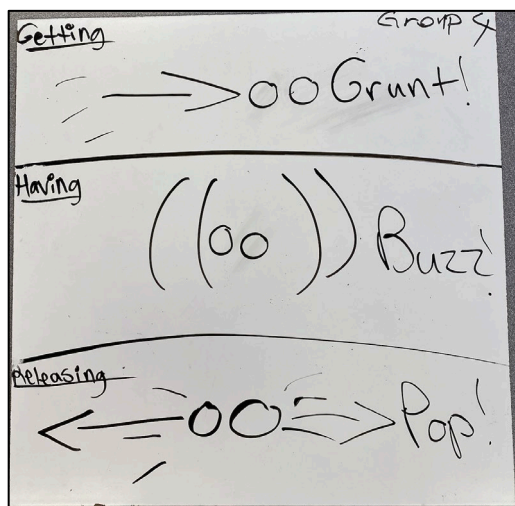 Getting
Group 4
Grunt!
Having
Buzz!
Releasing
Pop!